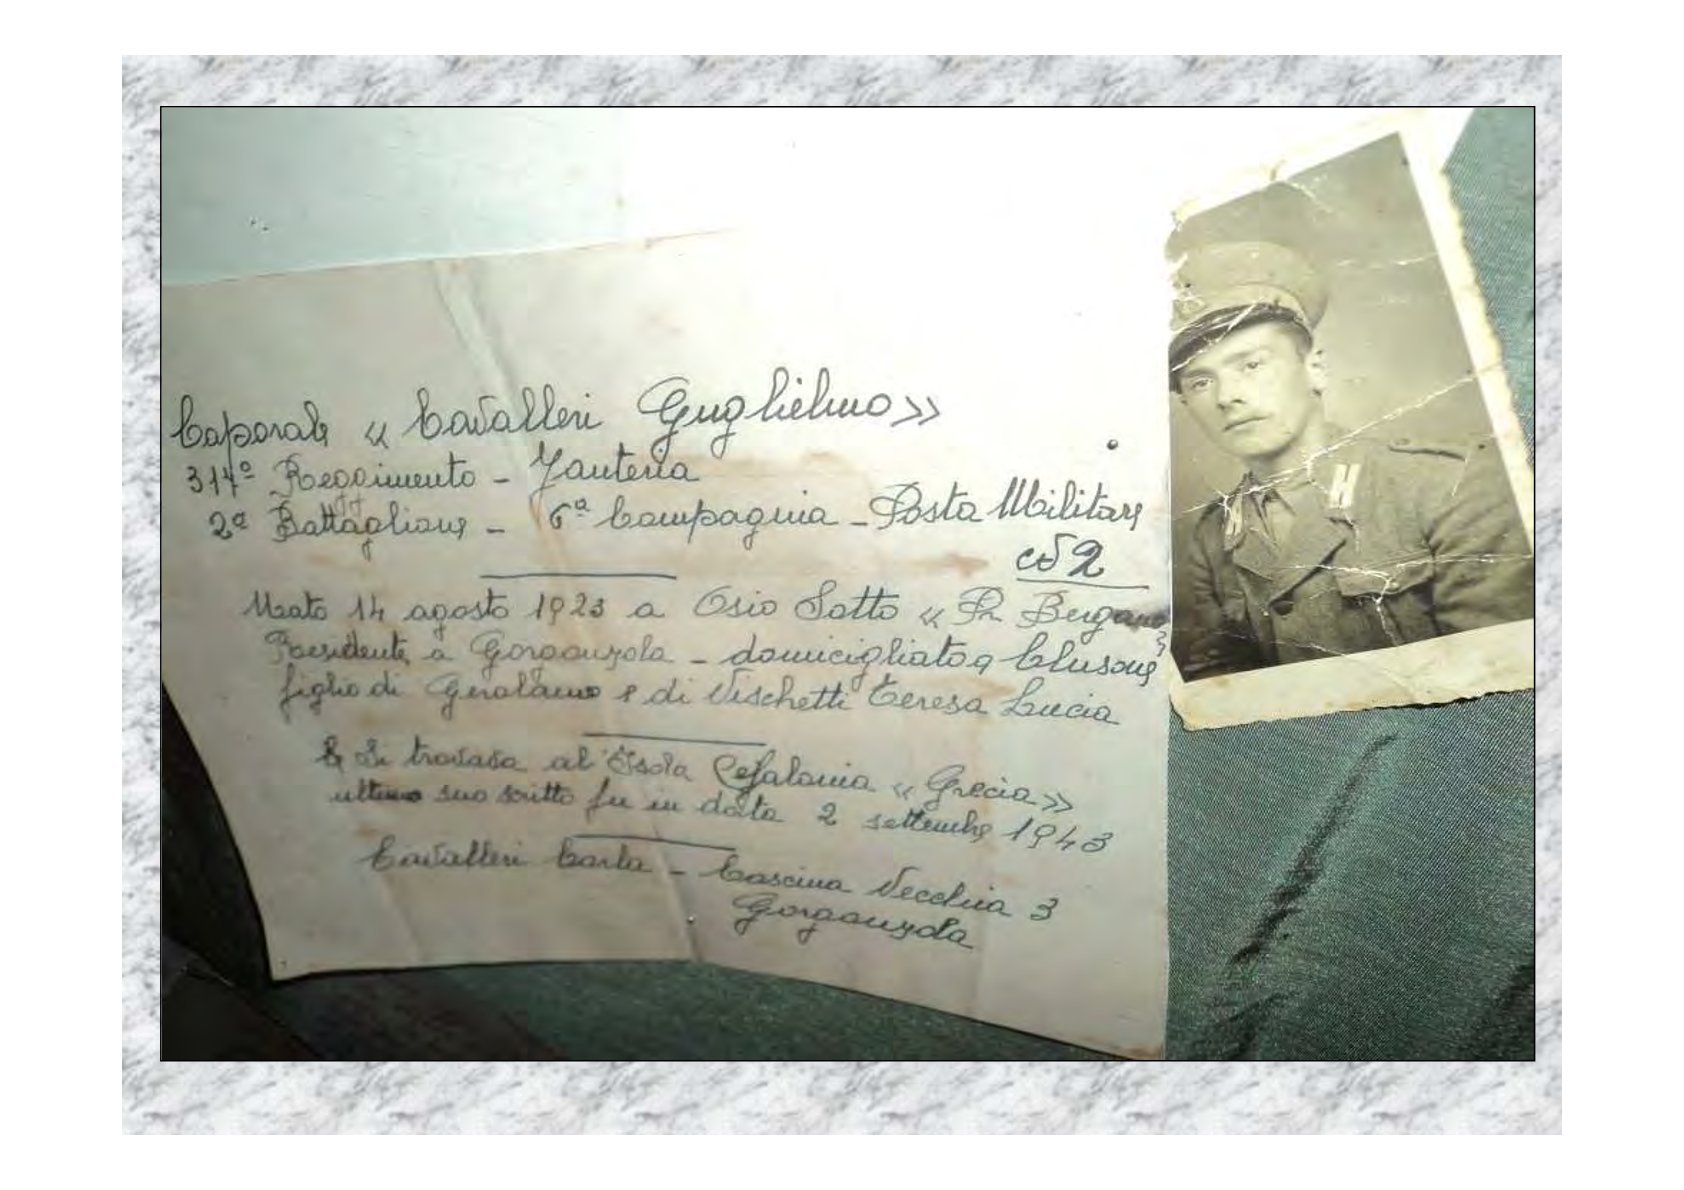 Caporale « Cavalleri Guglielmo »
317º Reggimento - Fanteria
2º Battaglione - 6ª Compagnia - Posta Militare
2
Nato 14 agosto 1923 a Osio Sotto « Pr Bergamo »
Residente a Gorgonzola - domicigliato a Clusone
figlio di Gerolamo e di Vischetti Teresa Lucia
Si trovava al' Isola Cefalonia « Grecia »
ultimo suo scritto fu in data 2 settembre 1943
Cavalleri Carla - Cascina Vecchia 3
Gorgonzola